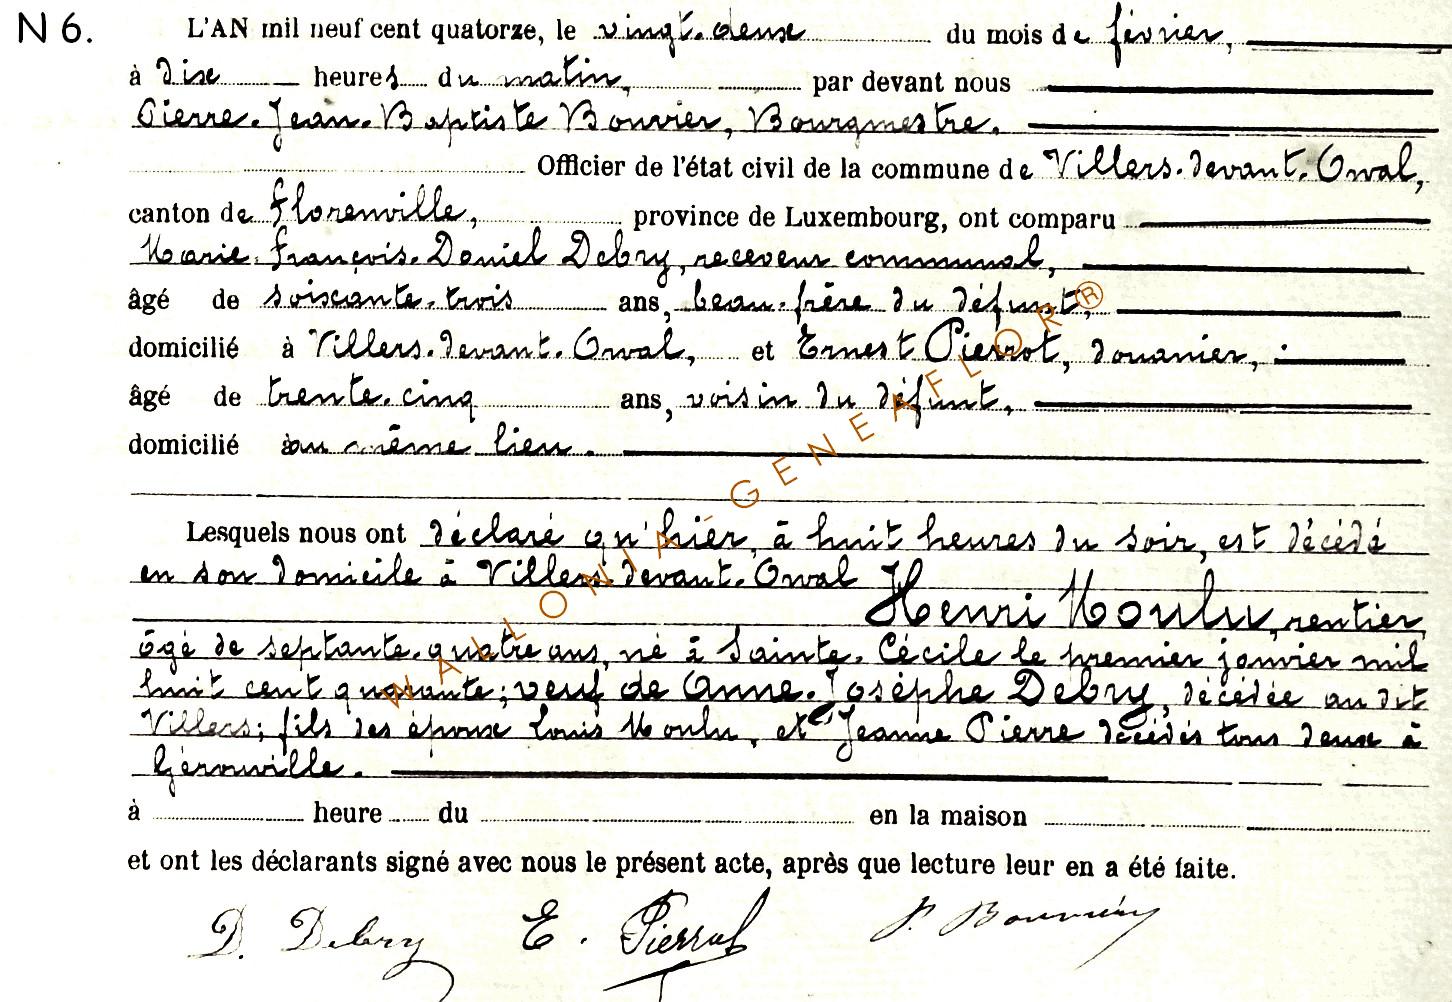 N 6.
L'AN mil neuf cent quatorze, le vingt-deux du mois de février,
à dix heures du matin, par devant nous
Pierre-Jean-Baptiste Bouvier, Bourgmestre.
Officier de l'état civil de la commune de Villers-devant-Orval,
canton de Florenville, province de Luxembourg, ont comparu
Marie-François-Daniel Debry, receveur communal,
âgé de soixante-trois ans, beau-frère du défunt,
domicilié à Villers-devant-Orval, et Ernest Pierrot, douanier,
âgé de trente-cinq ans, voisin du défunt,
domicilié au même lieu.
Lesquels nous ont déclaré qu'hier, à huit heures du soir, est décédé
en son domicile à Villers-devant-Orval
Henri Moulu, rentier,
âgé de septante-quatre ans, né à Sainte-Cécile le premier janvier mil
huit cent quarante; veuf de Anne-Josèphe Debry, décédée au dit
Villers; fils des époux Louis Moulu, et Jeanne Pierre décédés tous deux à
Gérouville.
à heure du en la maison
et ont les déclarants signé avec nous le présent acte, après que lecture leur en a été faite.
D. Debry E. Pierrot P. Bouvier
WALLONIA-GENEAFLOR®